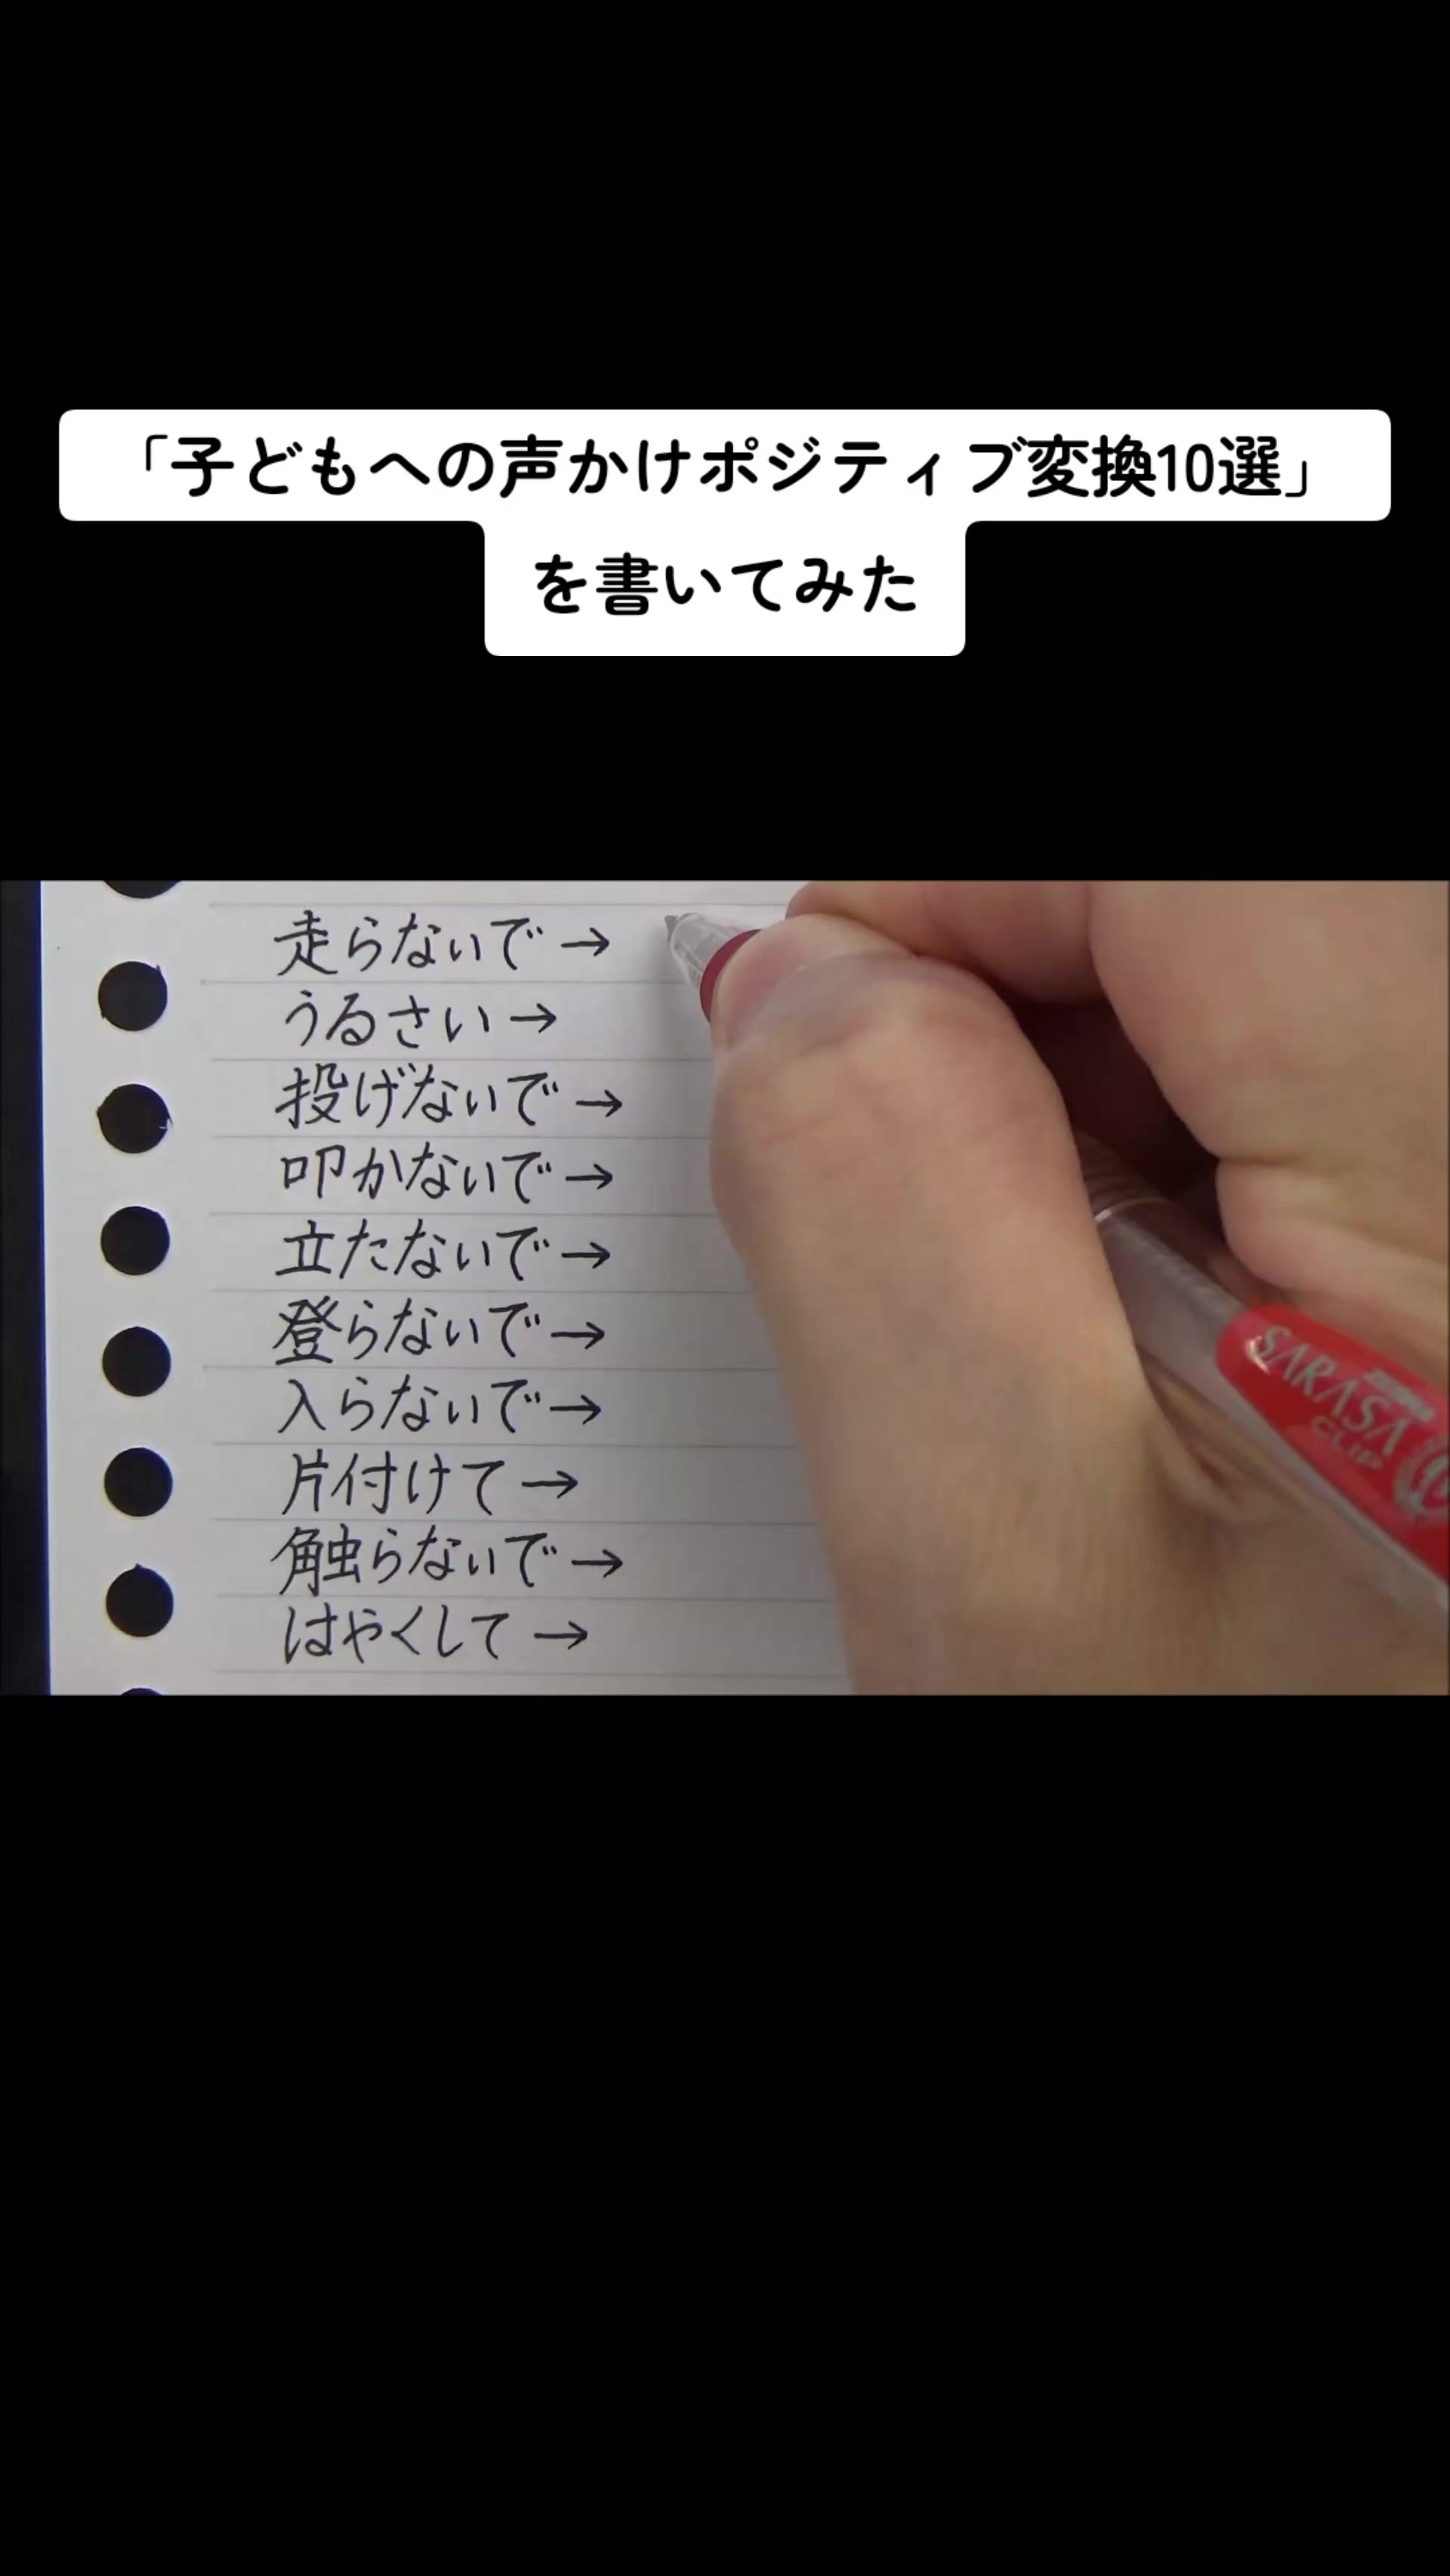 「子どもへの声かけポジティブ変換10選」
を書いてみた
走らないで→
うるさい→
投げないで→
叩かないで→
立たないで→
登らないで→
入らないで→
片付けて→
触らないで→
はやくして→
ZEBRA
SARASA
CLIP